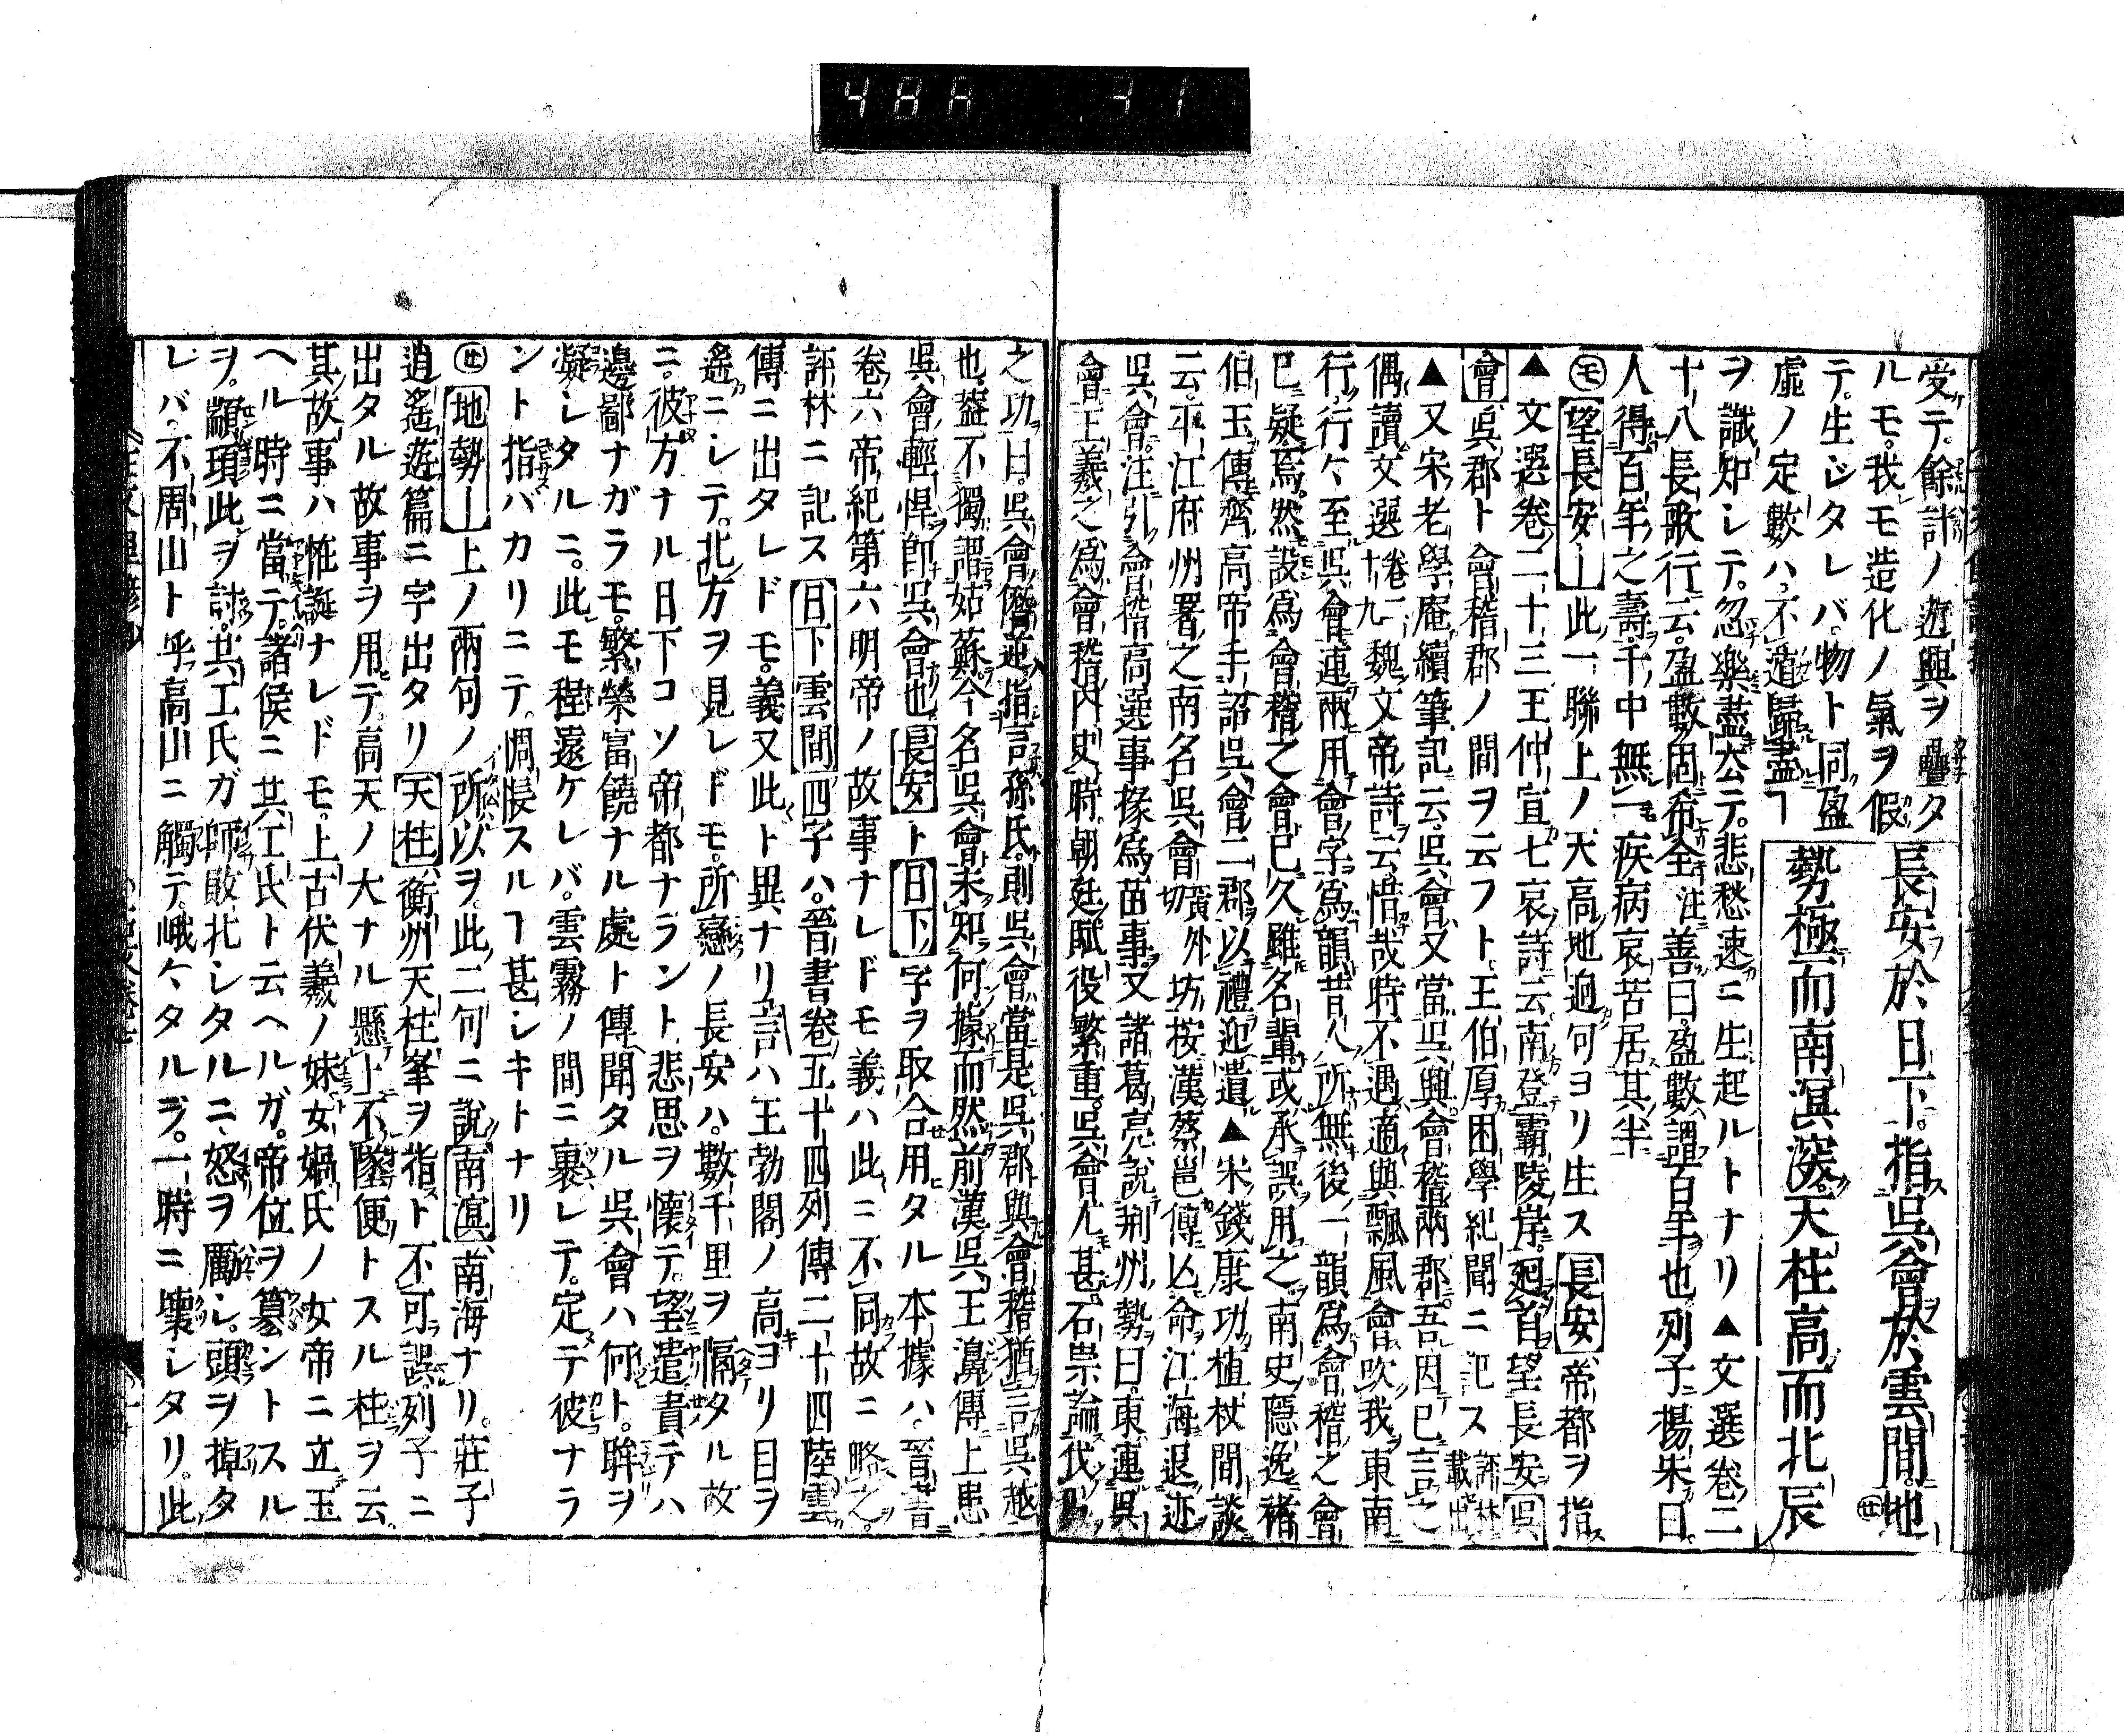 48A 31
受テ餘計ノ遊興ヲ疊タ
ルモ。我モ造化ノ氣ヲ假
テ。生ジタレバ。物ト同盈
虛ノ定數ハ。不遁歸盡ヿ
長安於日下。指吳會於雲間。地
勢極而南溟深。天柱高而北辰
ヲ識知シテ。忽樂盡去テ。悲愁速ニ生起ルトナリ▲文選卷二
十八長歌行云。盈數固希全 注善曰。盈數謂百年也列子楊朱曰。
人得百年之壽。千中無一。疾病哀苦居其半
望長安ー此一聯上ノ天高地迥句ヨリ生ス長安帝都ヲ指ス
▲文選卷二十三王仲宣七哀詩云南登霸陵岸。廻首望長安吳
會吳郡ト會稽郡ノ間ヲ云フト。王伯厚困學紀聞ニ記ス 評林載出
▲又宋老學庵續筆記云。吳會又當吳興。會稽兩郡。吾因已言之
偶讀文選卷二十九魏文帝詩云。惜哉時不遇。適與飄風會。吹我東南
行。行行至吳會。連兩用會字爲韻。昔人所無。後一韻爲會稽之會
已疑焉。然設爲會稽之會已久。雖名輩。或承誤用之。南史隱逸褚
伯玉傳齊高帝手詔吳會二郡。以禮迎遣▲宋錢康功植杖間談
云。平江府州署之南名吳會切黃外坊。按漢蔡邕傳亡命江海。退迹
吳會。注引會稽高遷事。掾爲苗事。又諸葛亮說荆州勢曰。東連吳
會王羲之爲會稽內史。時朝廷賦役繁重。吳會尤甚。石崇論伐吳
之功曰。吳會僭逆。指言孫氏。則吳會當是吳郡與會稽。猶言吳越
也。蓋不獨謂姑蘇。今名吳會。未知何據而然。前漢吳王濞傳上患
吳會輕悍。卽吳會也長安ト日下ノ字ヲ取合用タル本據ハ。晉書
卷六帝紀第六明帝ノ故事ナレドモ義ハ此ニ不同故ニ略之。
評林ニ記ス日下雲間四字ハ。晉書卷五十四列傳二十四陸雲
傳ニ出タレドモ。義又此ト異ナリ言ハ王勃閣ノ高キヨリ目ヲ
遙ニシテ。北方ヲ見レドモ。所戀ノ長安ハ。數千里ヲ隔タル故
ニ。彼方ナル日下コソ帝都ナラント。悲思ヲ懷テ。望遣責テハ
邊鄙ナガラモ。繁榮富饒ナル處ト傳聞タル吳會ハ何ト。眸ヲ
凝シタルニ。此モ程遠ケレバ。雲霧ノ間ニ裹レテ。定テ彼ナラ
ント指バカリニテ。惆悵スルヿ甚シキトナリ
地勢ー上ノ兩句ノ所以ヲ。此二句ニ說南溟南海ナリ。莊子
逍遙遊篇ニ字出タリ天柱衡州天柱峯ヲ指スト不可誤。列子ニ
出タル故事ヲ用テ。高天ノ大ナル懸上不墜便トスル柱ヲ云
其故事ハ恠誕ナレドモ。上古伏羲ノ妹女媧氏ノ女帝ニ立玉
ヘル時ニ當テ。諸侯ニ共工氏ト云ヘルガ。帝位ヲ簒ントスル
ヲ。顓頊此ヲ討。共工氏ガ師敗北シタルニ。怒ヲ厲シ。頭ヲ掉タ
レバ。不周山ト乎高山ニ觸テ。峨々タルヲ。一時ニ壞シタリ。此